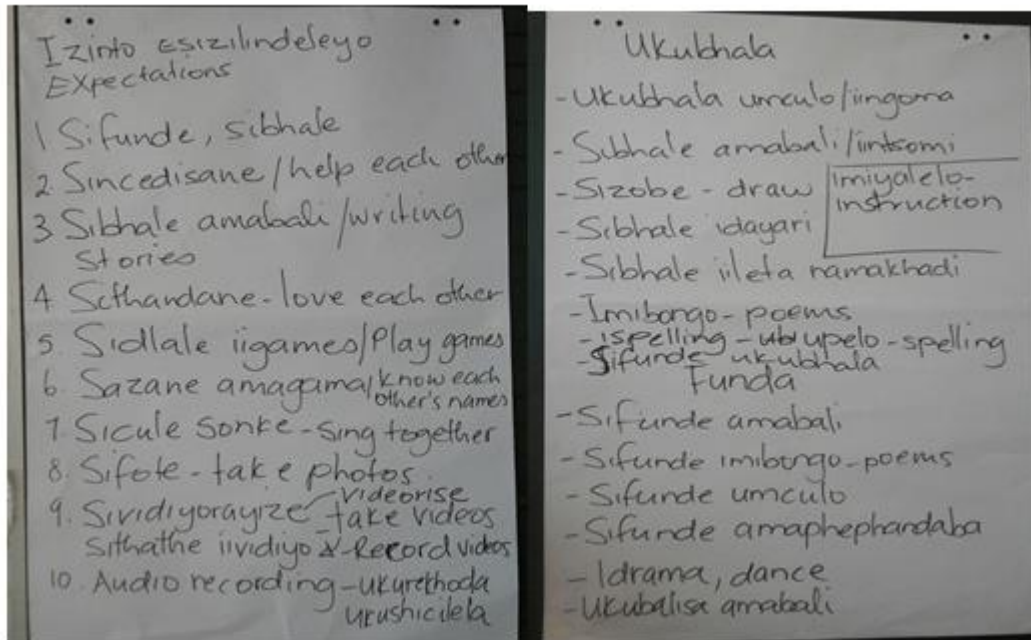 Izinto esizilindeleyo
Expectations
1 Sifunde, sibhale
2. Sincedisane/help each other
3 Sibhale amabali/writing
Stories
4 Sithandane - love each other
5. Sidlale iigames/Play games
6. Sazane amagama/know each
other's names
7. Sicule sonke - sing together
8. Sifote - take photos.
9. Sividiyorayize videorise
take videos
Sithathe iividiyo - Record videos
10. Audio recording - ukurekhoda
ukushicilela
Ukubhala
- Ukubhala umculo/iingoma
- Sibhale amabali/iintsomi
- Sizobe - draw
imiyalelo-
instruction
- Sibhale idayari
- Sibhale iileta namakhadi
- Imibongo - poems
- ispelling - ubupelo - spelling
- Sifunde ukubhala
Funda
- Sifunde amabali
- Sifunde imibongo - poems
- Sifunde umculo
- Sifunde amaphephandaba
- Idrama, dance
- Ukubalisa amabali